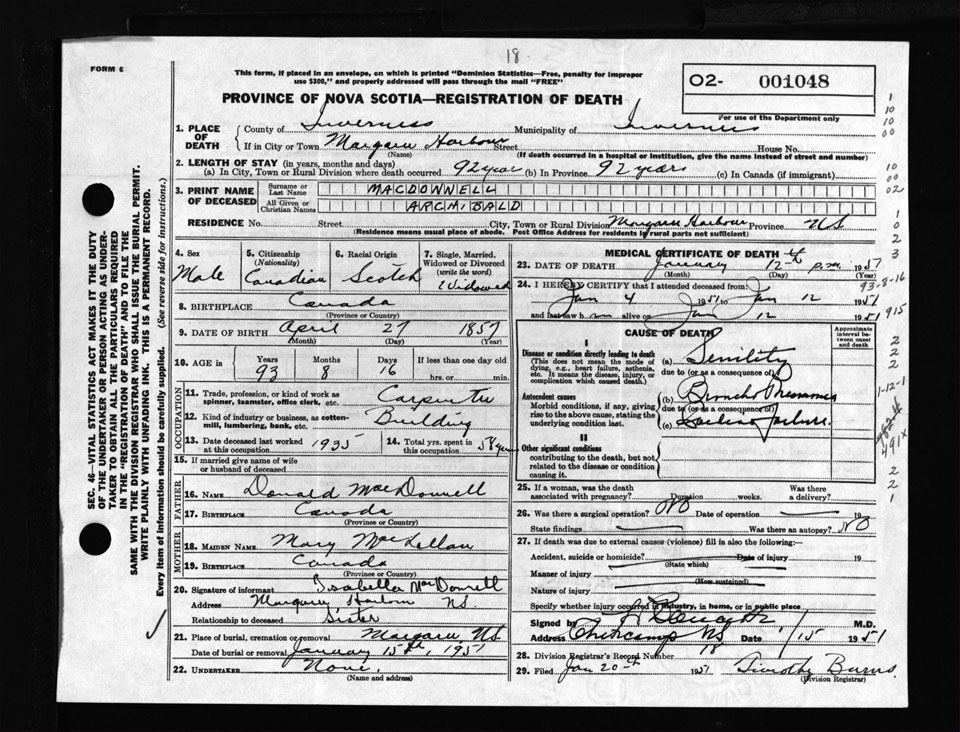 18
FORM 6
This form, if placed in an envelope, on which is printed "Dominion Statistics—Free, penalty for improper
use $300," and properly addressed will pass through the mail "FREE"
O2- 001048
For use of the Department only
PROVINCE OF NOVA SCOTIA—REGISTRATION OF DEATH
1. PLACE OF DEATH
County of Inverness Municipality of Inverness
If in City or Town Margaree Harbour Street House No.
(Name) (If death occurred in a hospital or institution, give the name instead of street and number)
2. LENGTH OF STAY (in years, months and days)
(a) In City, Town or Rural Division where death occurred 92 year (b) In Province 92 years (c) In Canada (if immigrant)
3. PRINT NAME OF DECEASED
Surname or Last Name MACDONNELL
All Given or Christian Names ARCHIBALD
RESIDENCE No. Street City, Town or Rural Division Margaree Harbour Province NS
(Residence means usual place of abode. Post Office Address for residents in rural parts not sufficient)
4. Sex
Male
5. Citizenship (Nationality)
Canadian
6. Racial Origin
Scotch
7. Single, Married, Widowed or Divorced (write the word)
Widowed
8. BIRTHPLACE Canada
(Province or Country)
9. DATE OF BIRTH April 27 1857
(Month) (Day) (Year)
10. AGE in Years Months Days If less than one day old
93 8 16 hrs. or min.
OCCUPATION
11. Trade, profession, or kind of work as spinner, teamster, office clerk, etc. Carpenter
12. Kind of industry or business, as cotton-mill, lumbering, bank, etc. Building
13. Date deceased last worked at this occupation 1935
14. Total yrs. spent in this occupation 58 years
15. If married give name of wife or husband of deceased
FATHER
16. NAME Donald MacDonnell
17. BIRTHPLACE Canada
(Province or Country)
MOTHER
18. MAIDEN NAME Mary MacLellan
19. BIRTHPLACE Canada
(Province or Country)
20. Signature of informant Isabella MacDonnell
Address Margaree Harbour NS.
Relationship to deceased Sister
21. Place of burial, cremation or removal Margaree NS
Date of burial or removal January 15th, 1951
22. UNDERTAKER None.
(Name and address)
MEDICAL CERTIFICATE OF DEATH
23. DATE OF DEATH January 12th p.m. 1951
(Month) (Day) (Year)
93-8-16
24. I HEREBY CERTIFY that I attended deceased from:
Jan 4 1951 to Jan 12 1951
and last saw him alive on Jan 12 1951
CAUSE OF DEATH
Approximate interval between onset and death
I
Disease or condition directly leading to death
(This does not mean the mode of dying, e.g., heart failure, asthenia, etc. It means the disease, injury, or complication which caused death.)
(a) Senility
due to (or as a consequence of)
Antecedent causes
Morbid conditions, if any, giving rise to the above cause, stating the underlying condition last.
(b) Broncho Pneumonia
due to (or as a consequence of)
(c) Cardiac failure.
II
Other significant conditions
contributing to the death, but not related to the disease or condition causing it.
25. If a woman, was the death associated with pregnancy? Duration weeks. Was there a delivery?
26. Was there a surgical operation? No Date of operation 19
State findings Was there an autopsy? No
27. If death was due to external causes (violence) fill in also the following:—
Accident, suicide or homicide? Date of injury 19
(State which)
Manner of injury
(How sustained)
Nature of injury
Specify whether injury occurred in industry, in home, or in public place
Signed by M.D.
Address Cheticamp NS Date 1/15 1951
28. Division Registrar's Record Number 18
29. Filed Jan 20th 1951 Timothy Burns.
(Division Registrar)
SEC. 46—VITAL STATISTICS ACT MAKES IT THE DUTY
OF THE UNDERTAKER OR PERSON ACTING AS UNDER-
TAKER TO OBTAIN ALL THE PARTICULARS REQUIRED
IN THE "REGISTRATION OF DEATH" AND TO FILE THE
SAME WITH THE DIVISION REGISTRAR WHO SHALL ISSUE THE BURIAL PERMIT.
WRITE PLAINLY WITH UNFADING INK. THIS IS A PERMANENT RECORD.
Every item of information should be carefully supplied. (See reverse side for instructions.)
1
10
10
00
10
00
02
1
0
2
3
915
2
2
2
1-12-1
491X
2
2
1